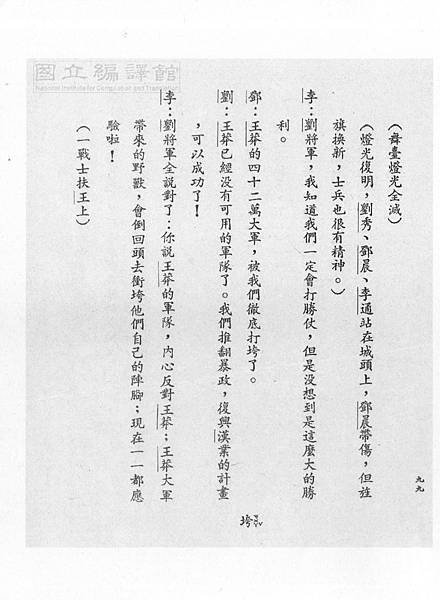 國立編譯館
National Institute for Compilation and Trans
九九
（舞臺燈光全滅）
（燈光復明，劉秀、鄧晨、李通站在城頭上，鄧晨帶傷，但旌
旗換新，士兵也很有精神。）
李：劉將軍，我知道我們一定會打勝仗，但是沒想到是這麼大的勝
利。
鄧：王莽的四十二萬大軍，被我們徹底打垮了。
劉：王莽已經沒有可用的軍隊了。我們推翻暴政，復興漢業的計畫
，可以成功了！
李：劉將軍全說對了：你說王莽的軍隊，內心反對王莽；王莽大軍
帶來的野獸，會倒回頭去衝垮他們自己的陣腳；現在一一都應
驗啦！
（一戰士扶王上）
垮ㄎㄨㄚˇ